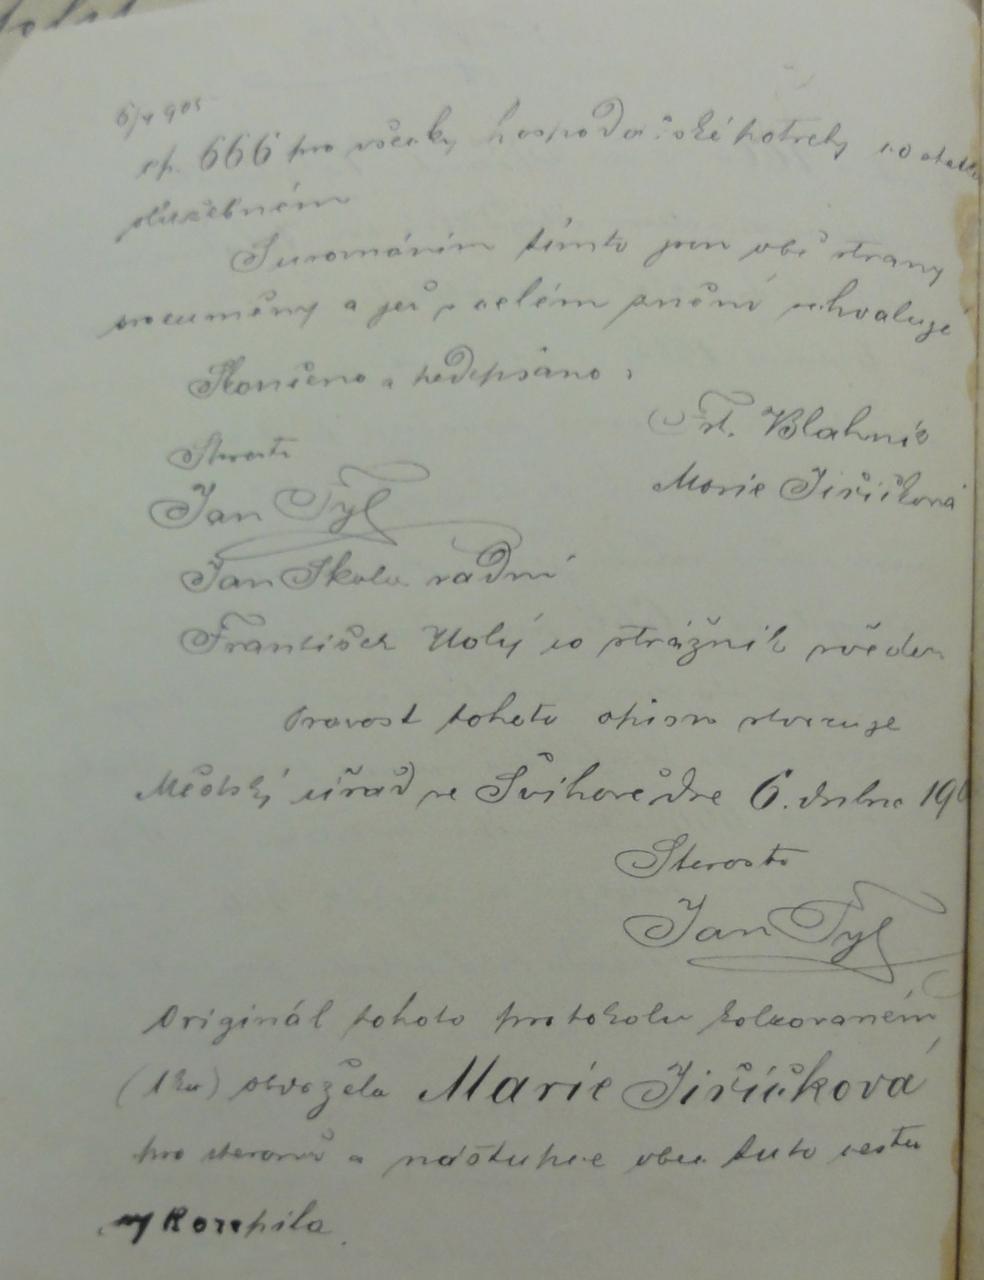 6/4 905
čp. 666 pro všecky hospodářské potřeby co statku
služebném
Srovnáním tímto jsou obě strany
srozuměny a jej v celém znění schvaluje
Skončeno a podepsáno.
Frt. Blahník
Marie Jiřičková
Starosta
Jan Tyl
Jan Skala radní
František Holý co strážník svědek
Pravost tohoto opisu stvrzuje
Městský úřad ve Švihově dne 6. dubna 190
Starosta
Jan Tyl
Originál tohoto protokolu kolkovaném
(1 ku) obdržela Marie Jiřičková
pro a nástupce obce tuto cestu
Rozepřela.